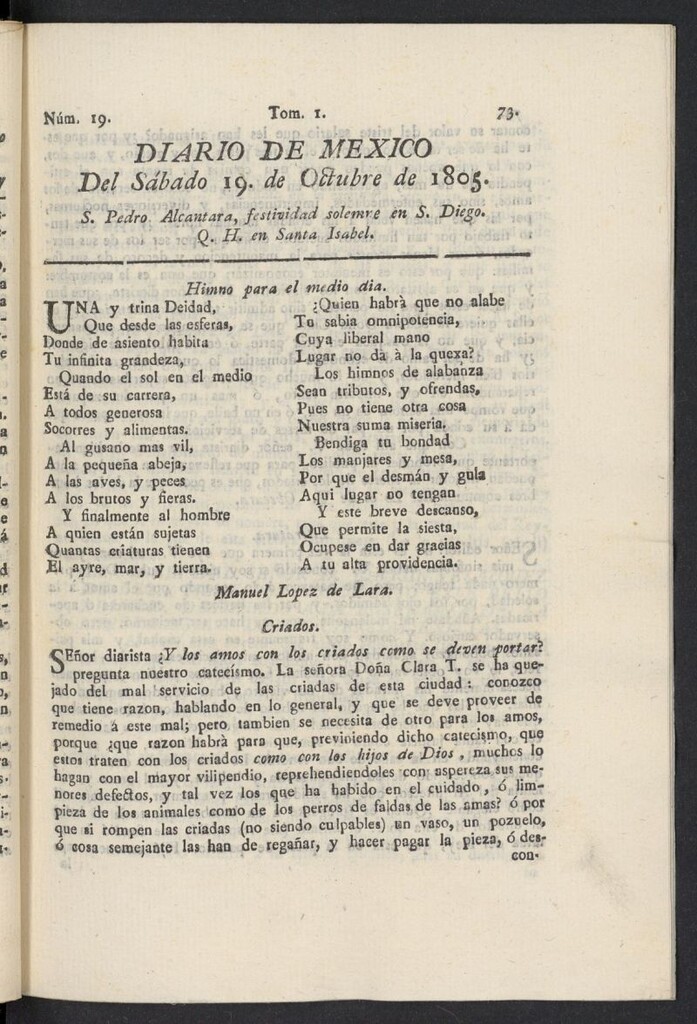 Núm. 19.
Tom. 1.
73.
DIARIO DE MEXICO
Del Sábado 19. de Octubre de 1805.
S. Pedro Alcantara, festividad solemne en S. Diego.
Q. H. en Santa Isabel.
Himno para el medio dia.
UNA y trina Deidad,
Que desde las esferas,
Donde de asiento habita
Tu infinita grandeza,
Quando el sol en el medio
Está de su carrera,
A todos generosa
Socorres y alimentas.
Al gusano mas vil,
A la pequeña abeja,
A las aves, y peces
A los brutos y fieras.
Y finalmente al hombre
A quien están sujetas
Quantas criaturas tienen
El ayre, mar, y tierra.
¿Quien habrà que no alabe
Tu sabia omnipotencia,
Cuya liberal mano
Lugar no dà à la quexa?
Los himnos de alabanza
Sean tributos, y ofrendas,
Pues no tiene otra cosa
Nuestra suma miseria.
Bendiga tu bondad
Los manjares y mesa,
Por que el desmán y gula
Aqui lugar no tengan.
Y este breve descanso,
Que permite la siesta,
Ocupese en dar gracias
A tu alta providencia.
Manuel Lopez de Lara.
Criados.
SEñor diarista ¿Y los amos con los criados como se deven portar?
pregunta nuestro catecismo. La señora Doña Clara T. se ha que-
jado del mal servicio de las criadas de esta ciudad: conozco
que tiene razon, hablando en lo general, y que se deve proveer de
remedio á este mal; pero tambien se necesita de otro para los amos,
porque ¿que razon habrà para que, previniendo dicho catecismo, que
estos traten con los criados como con los hijos de Dios, muchos lo
hagan con el mayor vilipendio, reprehendiendoles con aspereza sus me-
nores defectos, y tal vez los que ha habido en el cuidado, ó lim-
pieza de los animales como de los perros de faldas de las amas? ó por
que si rompen las criadas (no siendo culpables) un vaso, un pozuelo,
ó cosa semejante las han de regañar, y hacer pagar la pieza, ó des-
con-